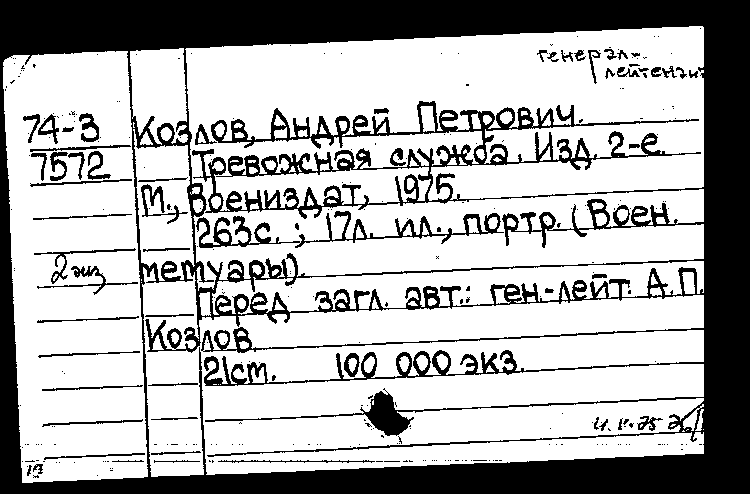 генерал-
лейтенант
74-3 Козлов, Андрей Петрович.
7572 Тревожная служба. Изд. 2-е.
М., Воениздат, 1975.
263с. ; 17л. ил., портр. (Воен.
2 экз метуары).
Перед загл. авт.: ген.-лейт. А.П.
Козлов.
21ст. 100 000 экз.